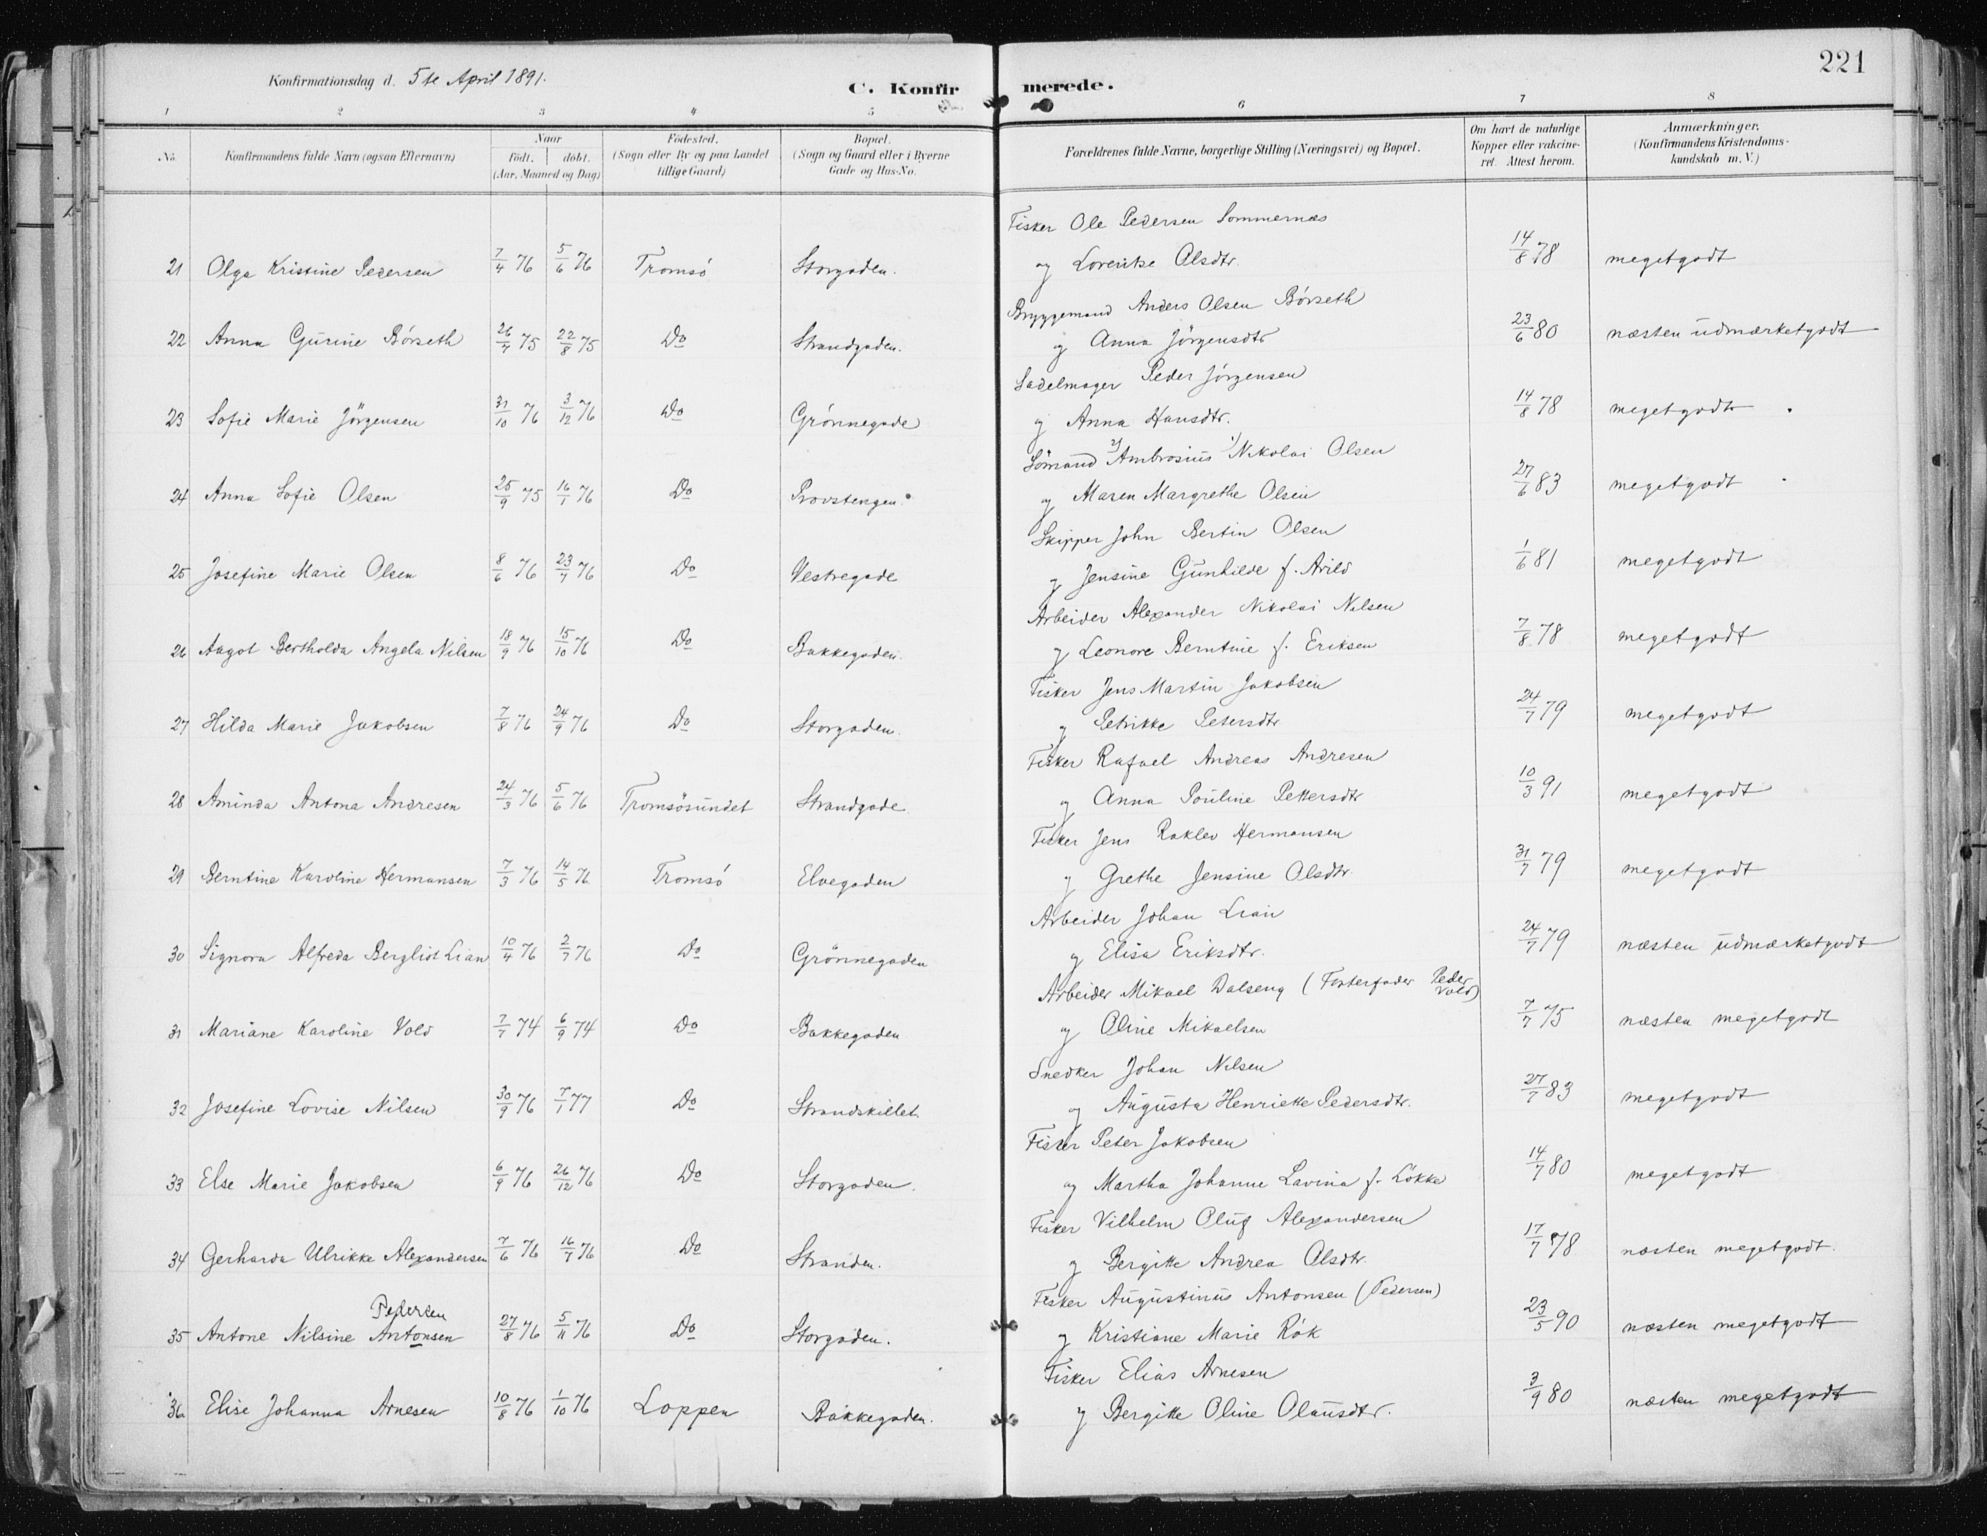 221
Konfirmationsdag d. 5te April 1891.
C. Konfirmerede.
1 2 3 4 5 6 7 8
No. Konfirmandens fulde Navn (ogsaa Efternavn) Naar født. døbt. (Aar, Maaned og Dag) Fødested. (Sogn eller By og paa Landet tillige Gaard) Bopæl. (Sogn og Gaard eller i Byerne Gade og Hus-No. Forældrenes fulde Navne, borgerlige Stilling (Næringsvei) og Bopæl. Om havt de naturlige Kopper eller vakcineret. Attest herom. Anmærkninger. (Konfirmandens Kristendomskundskab m. V.)
Fisker Ole Pedersen Sommernæs
21 Olga Kristine Pedersen 7/4 76 5/6 76 Tromsö Storgaden. og Lorentse Olsdtr. 14/8 78 megetgodt
Bryggemand Anders Olsen Börseth
22 Anna Gurine Börseth 26/7 75 22/8 75 Do Strandgaden. og Anna Jörgensdtr 23/6 80 næsten udmærketgodt
Sadelmager Peder Jörgensen
23 Sofie Marie Jörgensen 31/10 76 3/12 76 Do Grönnegade og Anna Hansdtr. 14/8 78 megetgodt
Sömand 2) Ambrosius 1) Nikolai Olsen
24 Anna Sofie Olsen 25/9 75 16/1 76 Do Provstengen. og Maren Margrethe Olsen 27/6 83 megetgodt
Skipper John Bertin Olsen
25 Josefine Marie Olsen 8/6 76 23/7 76 Do Vestregade og Jensine Gunhilde f. Arild 1/6 81 megetgodt
Arbeider Alexander Nikolai Nilsen
26 Aagot Bertholda Angela Nilsen 18/9 76 15/10 76 Do Bakkegaden. og Leonore Berntine f. Eriksen 7/8 78 megetgodt
Fisker Jens Martin Jakobsen
27 Hilda Marie Jakobsen 7/8 76 24/9 76 Do Storgaden. og Petrikke Petersdtr 24/7 79 megetgodt
Fisker Rafael Andreas Andresen
28 Aminda Antona Andresen 24/3 76 5/6 76 Tromsösundet Strandgade og Anna Pouline Pettersdtr 10/3 91 megetgodt
Fisker Jens Raklev Hermansen
29 Berntine Karoline Hermansen 7/3 76 14/5 76 Tromsö Elvegaden og Grethe Jensine Olsdtr 31/7 79 megetgodt
Arbeider Johan Lian
30 Signora Alfreda Bergliot Lian 10/4 76 2/7 76 Do Grönnegaden og Elisa Eriksdtr. 24/7 79 næsten udmærketgodt
Arbeider Mikael Dalseng (Fosterfader Peder Vold)
31 Mariane Karoline Vold 7/7 74 6/9 74 Do Bakkegaden og Oline Mikaelsen 7/7 75 næsten megetgodt
Snedker Johan Nilsen
32 Josefine Lovise Nilsen 30/9 76 7/1 77 Do Strandskillet. og Augusta Henriette Pedersdtr. 27/7 83 megetgodt
Fisker Peter Jakobsen
33 Else Marie Jakobsen 6/9 76 26/12 76 Do Storgaden. og Martha Johanne Lavina f. Lökke 14/7 80 megetgodt
Fisker Vilhelm Oluf Alexandersen
34 Gerharda Ulrikke Alexandersen 7/6 76 16/7 76 Do Stranden. og Bergitte Andrea Olsdtr. 17/7 78 næsten megetgodt.
Pedersen Fisker Augustinus Antonsen (Pedersen)
35 Antone Nilsine Antonsen 27/8 76 5/11 76 Do Storgaden. og Kristiane Marie Rök 23/5 90 næsten megetgodt
Fisker Elias Arnesen
36 Elise Johanna Arnesen 10/8 76 1/10 76 Loppen Bakkegaden. og Bergitte Oline Olausdtr. 3/9 80 næsten megetgodt